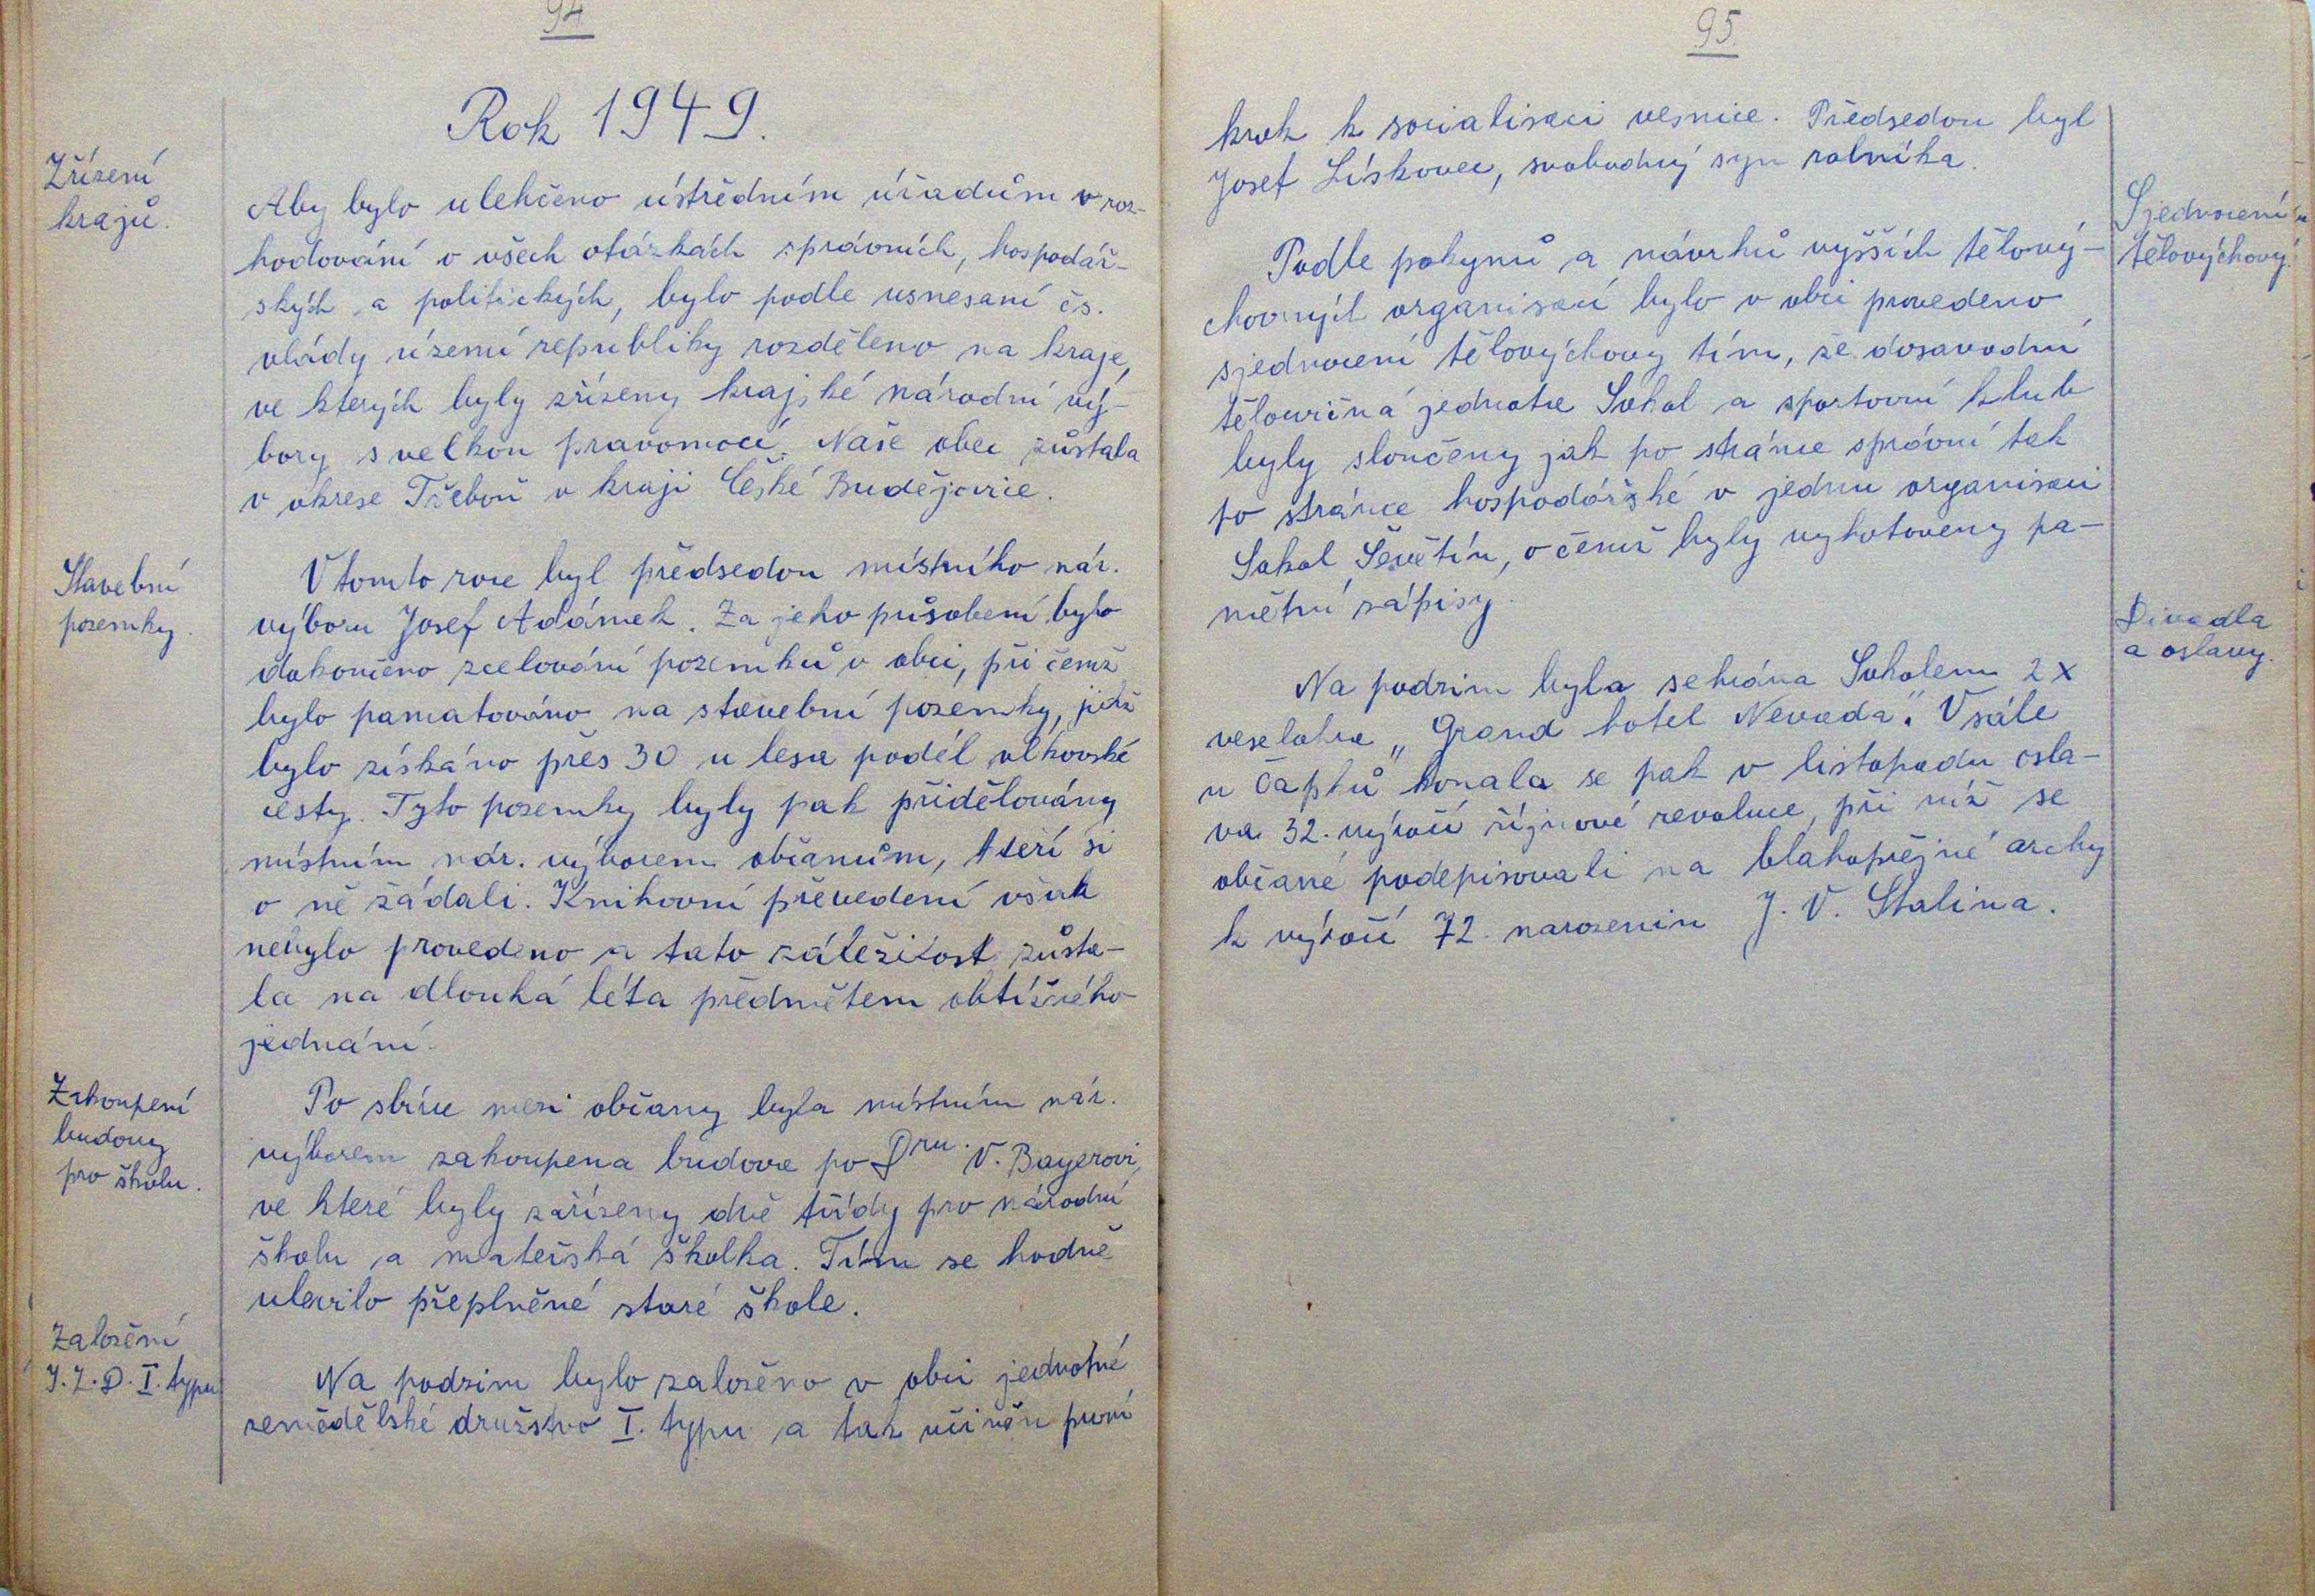 94
Rok 1949.
Zřízení
krajů.
Aby bylo ulehčeno ústředním úřadům v roz-
hodování o všech otázkách správních, hospodář-
ských a politických, bylo podle usnesaní čs.
vlády území republiky rozděleno na kraje,
ve kterých byly zřízeny krajské národní vý-
bory s velkou pravomocí. Naše obec zůstala
v okrese Třeboň v kraji České Budějovice.
Stavební
pozemky.
V tomto roce byl předsedou místního nár.
výboru Josef Adámek. Za jeho působení bylo
dokončeno zcelování pozemků v obci, při čemž
bylo pamatováno na stavební pozemky, jichž
bylo získáno přes 30 u lesa podél vlkovské
cesty. Tyto pozemky byly pak přidělovány
místním nár. výborem občanům, kteří si
o ně žádali. Knihovní převedení však
nebylo provedeno a tato záležitost zůsta-
la na dlouhá léta předmětem obtížného
jednání.
Zakoupení
budovy
pro školu.
Po sbírce mezi občany byla místním nár.
výborem zakoupena budova po Dru. V. Bayerovi,
ve které byly zařízeny dvě třídy pro národní
školu a mateřská školka. Tím se hodně
ulevilo přeplněné staré škole.
Založení
J.Z.D. I. typu
Na podzim bylo založeno v obci jednotné
zemědělské družstvo I. typu a tak učiněn první
95
krok k socialisaci vesnice. Předsedou byl
Josef Lískovec, svobodný syn rolníka.
Sjednocení
tělovýchovy.
Podle pokynů a návrhů vyšších tělový-
chovných organisací bylo v obci provedeno
sjednocení tělovýchovy tím, že dosavadní
tělocvičná jednota Sokol a sportovní klub
byly sloučeny jak po stránce správní tak
po stránce hospodářské v jednu organisaci
Sokol Ševětín, o čemž byly vyhotoveny pa-
mětní zápisy.
Divadla
a oslavy.
Na podzim byla sehrána Sokolem 2x
veselohra „Grand hotel Nevada". V sále
u Čapků konala se pak v listopadu osla-
va 32. výročí říjnové revoluce, při níž se
občané podepisovali na blahopřejné archy
k výročí 72. narozenin J. V. Stalina.